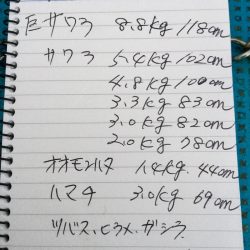 巨サワラ 8.8kg 118cm
サワラ 5.4kg 102cm
4.8kg 100cm
3.3kg 83cm
3.0kg 82cm
2.0kg 78cm
オオモンハタ 1.4kg. 44cm
ハマチ 3.0kg 69cm
ツバス、ヒラメ、ガシラ